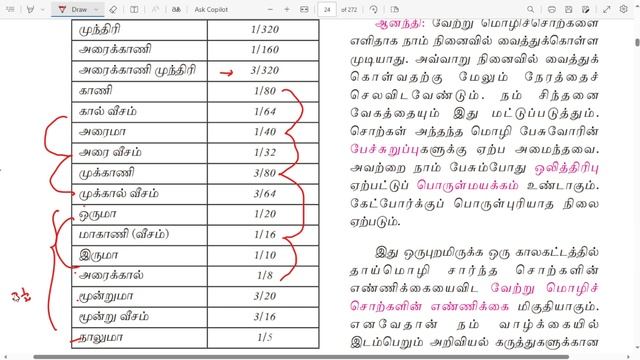 Draw
Ask Copilot
24
of 272
முந்திரி 1/320
அரைக்காணி 1/160
அரைக்காணி முந்திரி 3/320
காணி 1/80
கால் வீசம் 1/64
அரைமா 1/40
அரை வீசம் 1/32
முக்காணி 3/80
முக்கால் வீசம் 3/64
ஒருமா 1/20
மாகாணி (வீசம்) 1/16
இருமா 1/10
அரைக்கால் 1/8
மூன்றுமா 3/20
மூன்று வீசம் 3/16
நாலுமா 1/5
ஆனந்தி: வேற்று மொழிச்சொற்களை
எளிதாக நாம் நினைவில் வைத்துக்கொள்ள
முடியாது. அவ்வாறு நினைவில் வைத்துக்
கொள்வதற்கு மேலும் நேரத்தைச்
செலவிடவேண்டும். நம் சிந்தனை
வேகத்தையும் இது மட்டுப்படுத்தும்.
சொற்கள் அந்தந்த மொழி பேசுவோரின்
பேச்சுறுப்புகளுக்கு ஏற்ப அமைந்தவை.
அவற்றை நாம் பேசும்போது ஒலித்திரிபு
ஏற்பட்டுப் பொருள்மயக்கம் உண்டாகும்.
கேட்போர்க்குப் பொருள்புரியாத நிலை
ஏற்படும்.
இது ஒருபுறமிருக்க ஒரு காலகட்டத்தில்
தாய்மொழி சார்ந்த சொற்களின்
எண்ணிக்கையைவிட வேற்று மொழிச்
சொற்களின் எண்ணிக்கை மிகுதியாகும்.
எனவேதான் நம் வாழ்க்கையில்
இடம்பெறும் அறிவியல் கருத்துகளுக்கான